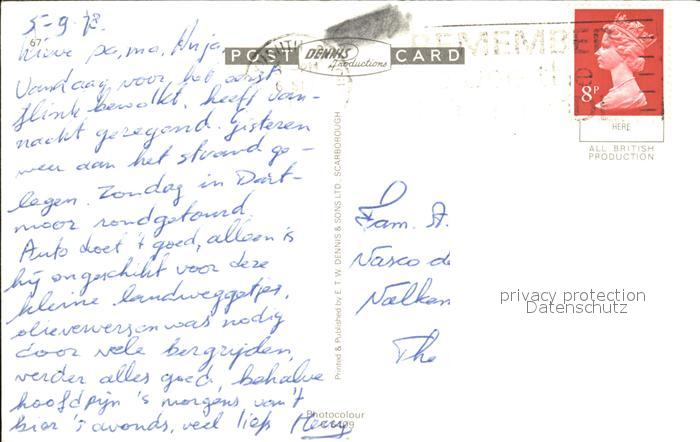 5-9-73
67
Lieve pa, ma, Anja,
Vandaag voor het eerst
flink bewolkt. heeft van-
nacht geregend. gisteren
weer aan het strand ge-
legen. Zondag in Dart-
moor rondgetourd.
Auto doet 't goed, alleen is
hij ongeschikt voor deze
kleine landweggetjes,
olieverversen was nodig
door vele bergrijden,
verder alles goed, behalve
hoofdpijn 's morgens van 't
bier 's avonds, veel liefs
POST CARD
DENNIS
Productions
REMEMBE
8P
HERE
ALL BRITISH
PRODUCTION
Printed & Published by E. T. W. DENNIS & SONS LTD. SCARBOROUGH
Fam. A.
Vasco d
Valken
The
privacy protection
Datenschutz
Photocolour